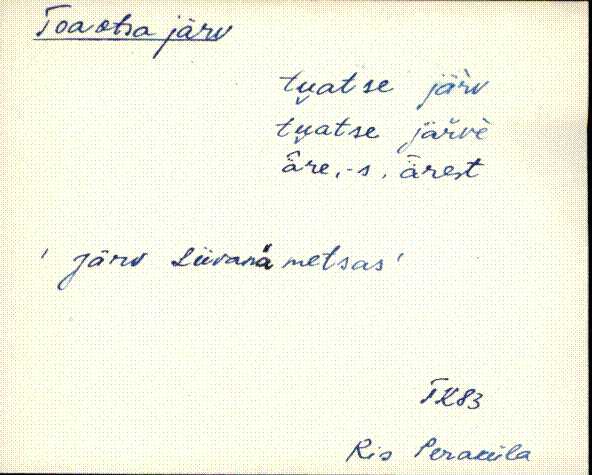 Toaotsa järv
tu̯atse järv
tu̯atse järvè
äre, -s, ärest
' järv Liivanõmme metsas '
TK83
Ris Peraküla